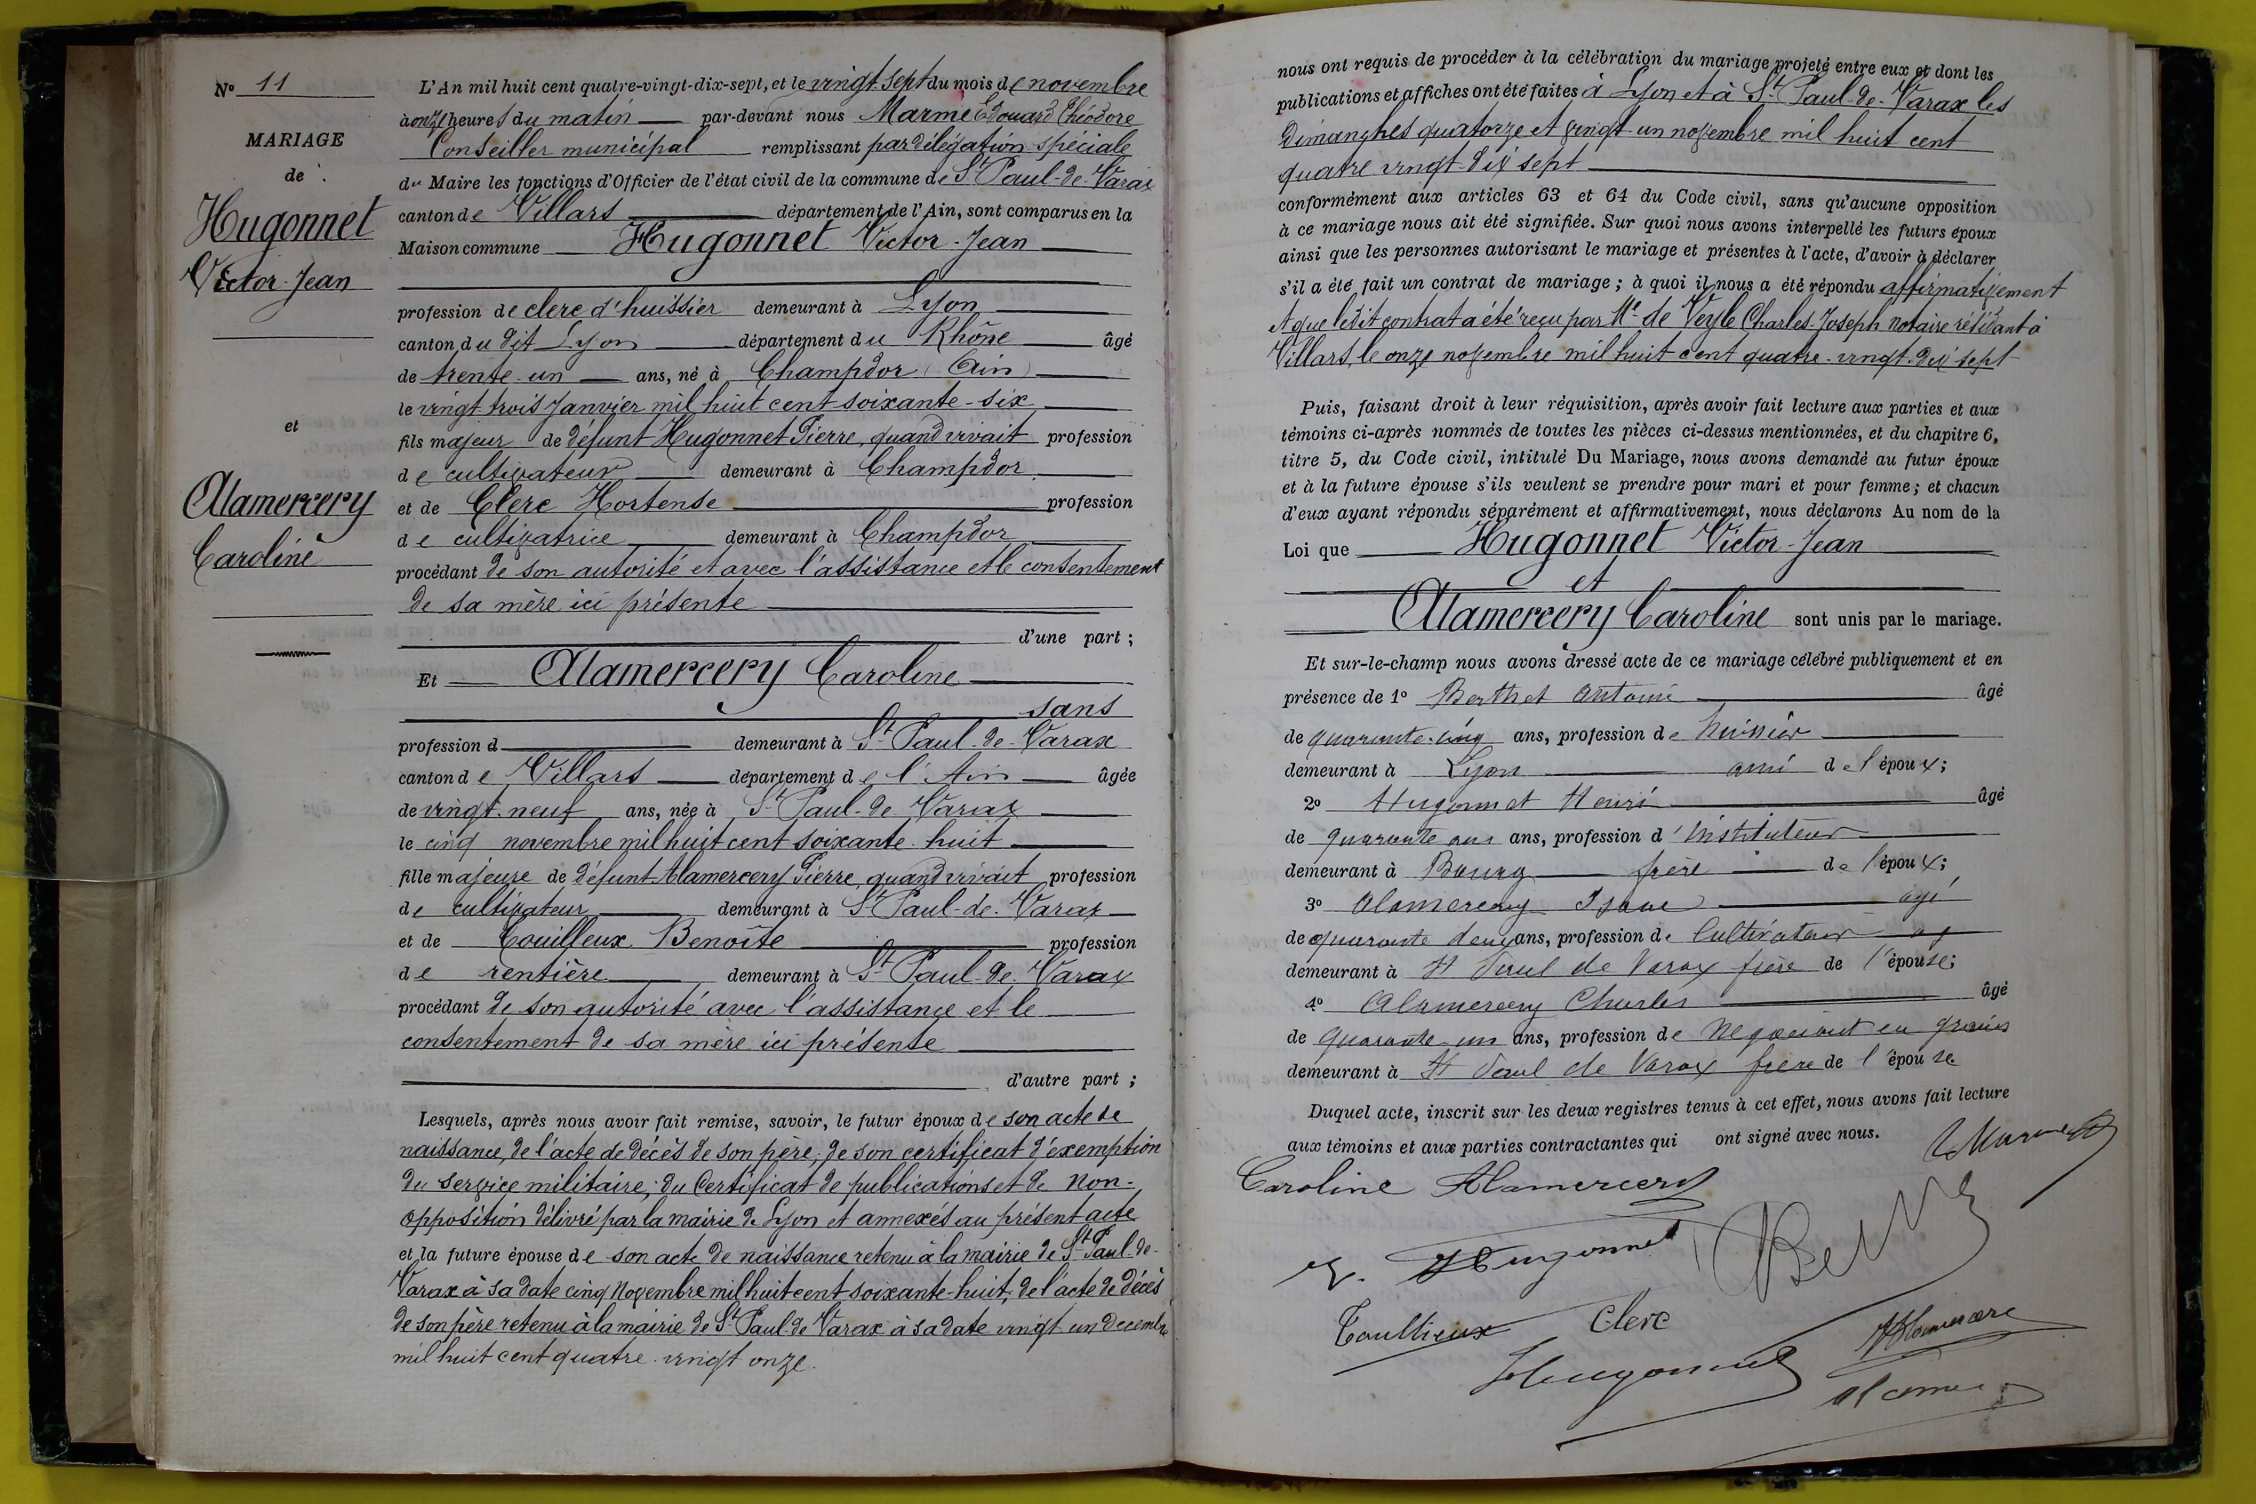 N° 11
MARIAGE
de
Hugonnet
Victor-Jean
et
Alamercery
Caroline
L'An mil huit cent quatre-vingt-dix-sept, et le vingt sept du mois de novembre
à onze heures du matin par-devant nous Marme Edouard Théodore
Conseiller municipal remplissant par délégation spéciale
du Maire les fonctions d'Officier de l'état civil de la commune de St Paul-de-Varax
canton de Villars département de l'Ain, sont comparus en la
Maison commune Hugonnet Victor-Jean
profession de clerc d'huissier demeurant à Lyon
canton du dit Lyon département du Rhône âgé
de trente-un ans, né à Champdor (Ain)
le vingt trois Janvier mil huit cent soixante-six
fils majeur de défunt Hugonnet Pierre, quand vivait profession
de cultivateur demeurant à Champdor
et de Clerc Hortense profession
de cultivatrice demeurant à Champdor
procédant de son autorité et avec l'assistance et le consentement
de sa mère ici présente
d'une part ;
Et Alamercery Caroline
sans
profession d demeurant à St Paul-de-Varax
canton de Villars département de l'Ain âgée
de vingt-neuf ans, née à St Paul-de Varax
le cinq novembre mil huit cent soixante-huit
fille majeure de défunt Alamercery Pierre, quand vivait profession
de cultivateur demeurant à St Paul-de-Varax
et de Couilleux Benoîte profession
de rentière demeurant à St Paul-de-Varax
procédant de son autorité avec l'assistance et le
consentement de sa mère ici présente
d'autre part ;
Lesquels, après nous avoir fait remise, savoir, le futur époux de son acte de
naissance, de l'acte de décès de son père, de son certificat d'exemption
du service militaire, du Certificat de publications et de non-
opposition délivré par la mairie de Lyon et annexés au présent acte
et la future épouse de son acte de naissance retenu à la mairie de St Paul-de-
Varax à sa date cinq Novembre mil huit cent soixante-huit, de l'acte de décès
de son père retenu à la mairie de St Paul-de Varax à sa date vingt-un Décembre
mil huit cent quatre-vingt onze.
nous ont requis de procéder à la célébration du mariage projeté entre eux et dont les
publications et affiches ont été faites à Lyon et à St Paul-de-Varax les
Dimanches quatorze et vingt-un novembre mil huit cent
quatre vingt-dix sept
conformément aux articles 63 et 64 du Code civil, sans qu'aucune opposition
à ce mariage nous ait été signifiée. Sur quoi nous avons interpellé les futurs époux
ainsi que les personnes autorisant le mariage et présentes à l'acte, d'avoir à déclarer
s'il a été fait un contrat de mariage ; à quoi il nous a été répondu affirmativement
et que ledit contrat a été reçu par Me de Veyle Charles-Joseph notaire résidant à
Villars, le onze novembre mil huit cent quatre-vingt-dix sept
Puis, faisant droit à leur réquisition, après avoir fait lecture aux parties et aux
témoins ci-après nommés de toutes les pièces ci-dessus mentionnées, et du chapitre 6,
titre 5, du Code civil, intitulé Du Mariage, nous avons demandé au futur époux
et à la future épouse s'ils veulent se prendre pour mari et pour femme ; et chacun
d'eux ayant répondu séparément et affirmativement, nous déclarons Au nom de la
Loi que Hugonnet Victor-Jean
et
Alamercery Caroline sont unis par le mariage.
Et sur-le-champ nous avons dressé acte de ce mariage célébré publiquement et en
présence de 1° Berthet Antoine âgé
de quarante-cinq ans, profession de huissier
demeurant à Lyon ami de l'époux ;
2° Hugonnet Henri âgé
de quarante ans ans, profession d'instituteur
demeurant à Bourg frère de l'époux ;
3° Alamercery Isaac agé
de quarante deux ans, profession de Cultivateur
demeurant à St Paul de Varax frère de l'épouse ;
4° Alamercery Charles âgé
de quarante-un ans, profession de Négociant en grains
demeurant à St Paul de Varax frère de l'épouse
Duquel acte, inscrit sur les deux registres tenus à cet effet, nous avons fait lecture
aux témoins et aux parties contractantes qui ont signé avec nous.
Caroline Alamercery
V. Hugonnet
Couillieux Clerc
Hugonnet